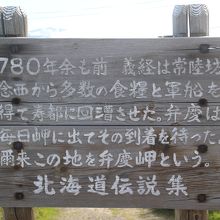 780年余も前 義経は常陸坊
念西から多数の食糧と軍船を
得て寿都に回漕させた。弁慶は
毎日岬に出てその到着を待った。
爾来この地を弁慶岬という。
北海道伝説集